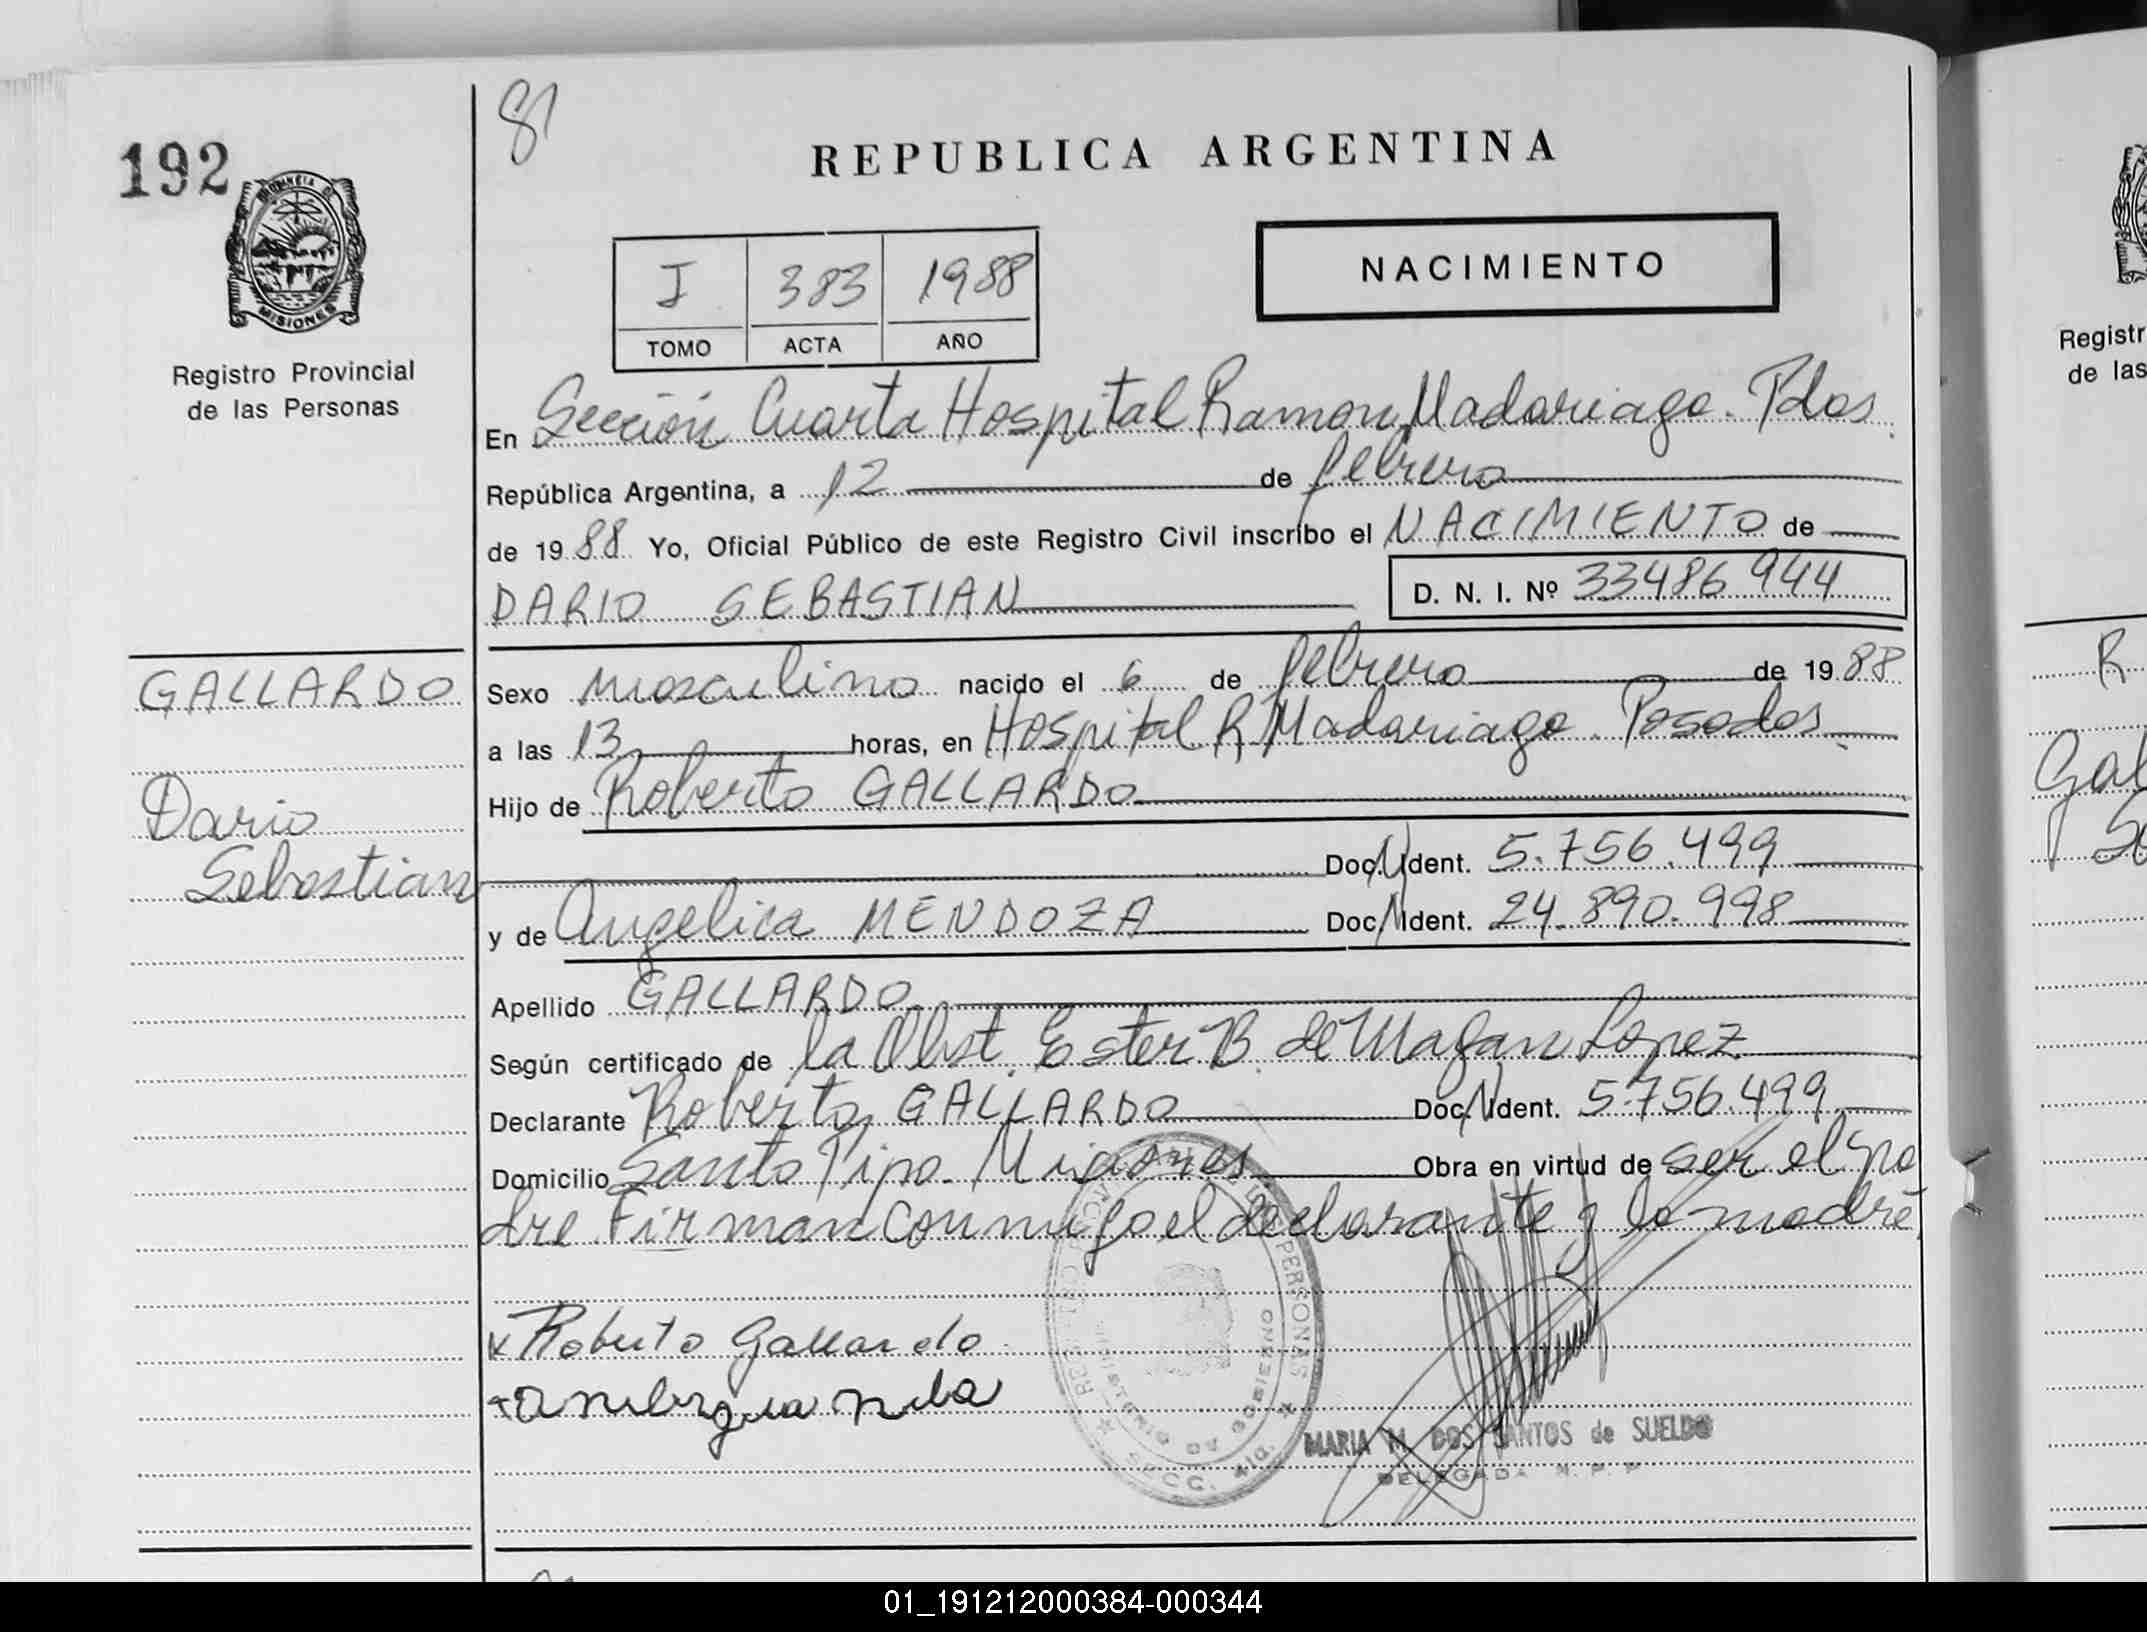 192
81
REPUBLICA ARGENTINA
PROVINCIA DE
MISIONES
Registro Provincial
de las Personas
I 383 1988
TOMO ACTA AÑO
NACIMIENTO
En Sección Cuarta Hospital Ramon Madariaga. Pdas
República Argentina, a 12 de febrero
de 1988 Yo, Oficial Público de este Registro Civil inscribo el NACIMIENTO de
DARIO SEBASTIAN D. N. I. Nº 33486944
GALLARDO
Dario
Sebastian
Sexo masculino nacido el 6 de febrero de 1988
a las 13 horas, en Hospital R Madariaga. Posadas
Hijo de Roberto GALLARDO
Doc. Ident. 5.756.499
y de Angelica MENDOZA Doc. Ident. 24.890.998
Apellido GALLARDO
Según certificado de la Obst. Ester B. de Lopez
Declarante Roberto GALLARDO Doc. Ident. 5.756.499
Domicilio Santo Pipo. Misiones Obra en virtud de ser el pa
dre. Firman conmigo el declarante y la madre
Roberto Gallardo
PERSONAS
MINISTERIO DE GOBIERNO
MARIA M. DOS SANTOS de SUELDO
DELEGADA R. P. P
Registr
de las
R
Gal
S
01_191212000384-000344